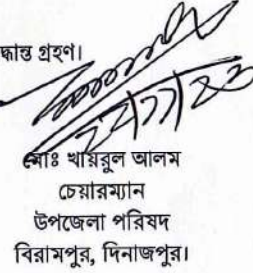 দ্ধান্ত গ্রহণ।
মোঃ খায়রুল আলম
চেয়ারম্যান
উপজেলা পরিষদ
বিরামপুর, দিনাজপুর।